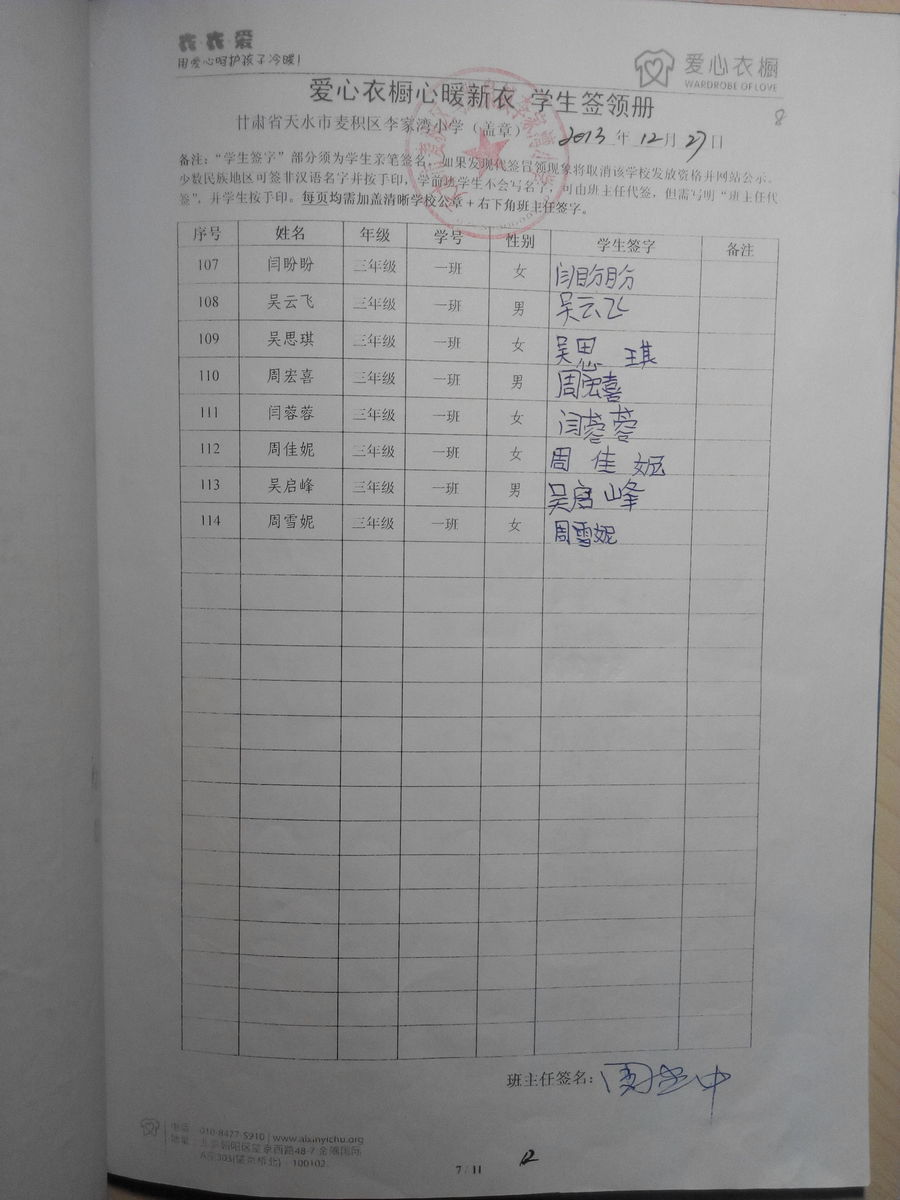 衣·衣·爱
用爱心呵护孩子冷暖!
爱心衣橱
WARDROBE OF LOVE
爱心衣橱心暖新衣 学生签领册
8
甘肃省天水市麦积区李家湾小学（盖章） 2013年12月27日
备注：“学生签字”部分须为学生亲笔签名，如果发现代签冒领现象将取消该学校发放资格并网站公示。
少数民族地区可签非汉语名字并按手印，学前班学生不会写名字，可由班主任代签，但需写明“班主任代
签”，并学生按手印。每页均需加盖清晰学校公章+右下角班主任签字。
序号 姓名 年级 学号 性别 学生签字 备注
107 闫盼盼 三年级 一班 女 闫盼盼
108 吴云飞 三年级 一班 男 吴云飞
109 吴思琪 三年级 一班 女 吴思 琪
110 周宏喜 三年级 一班 男 周宏喜
111 闫蓉蓉 三年级 一班 女 闫蓉蓉
112 周佳妮 三年级 一班 女 周 佳 妮
113 吴启峰 三年级 一班 男 吴启峰
114 周雪妮 三年级 一班 女 周雪妮
班主任签名：
电话：010-8477-5910 | www.aixinyichu.org
地址：北京朝阳区望京西路48-7 金隅国际
A座303(望京桥北) · 100102
7 / 11
12